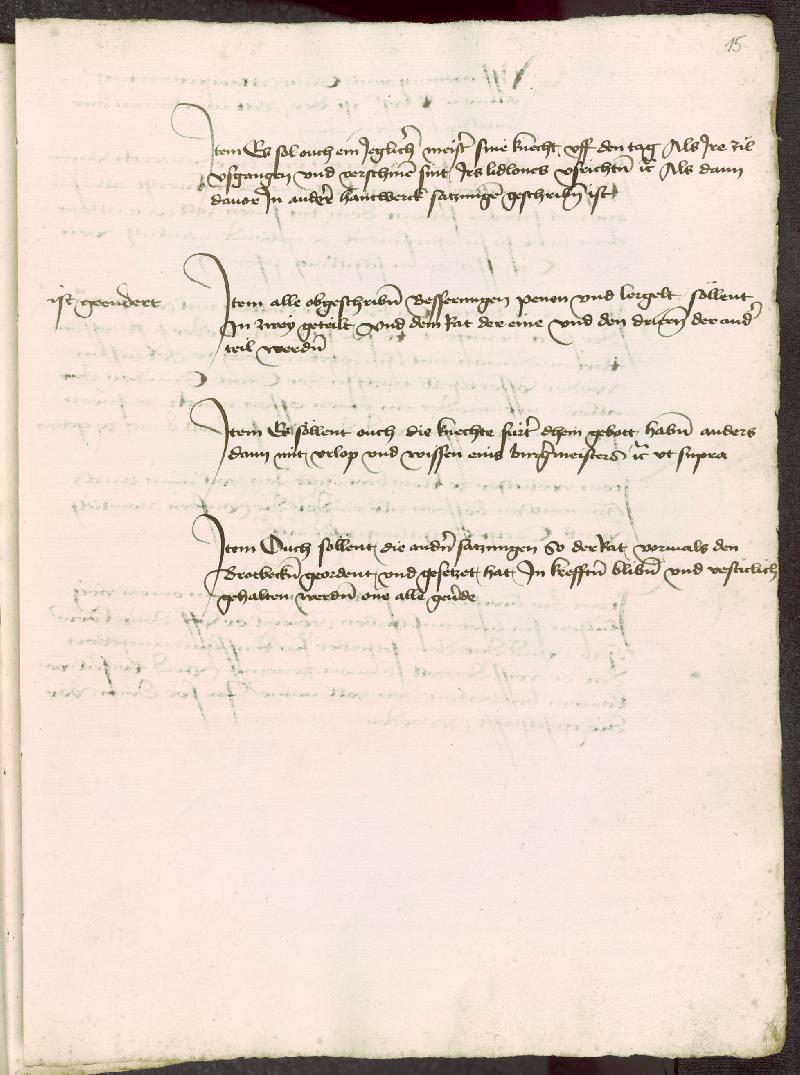 15
Item Es sol ouch ein Jeglicher meister sine knecht vff den tag Als Jre zil
vsgangen vnd verschinen sint Jrs lidlones vsrichten etc Als dann
dauor In andere hantwerck satzungen geschriben ist
ist geendert
Item alle obgeschriben besserungen penen vnd sollent
In zwey geteilt vnd dem Rat der eine vnd den der ander
teil werden
Item Es sollent ouch die knechte fürter dhein gebott haben anders
dann mit vrlop vnd wissen eins burgermeisters etc vt supra
Item Ouch sollent die andern satzungen So der Rat vormals den
Brotbecken geordent vnd gesetzet hat In krefften bliben vnd vesticlich
gehalten werden one alle geuerde